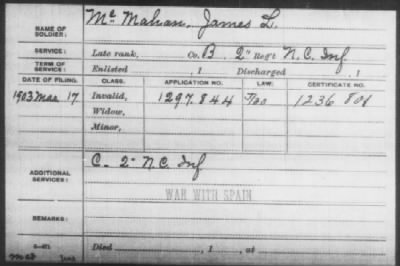 NAME OF SOLDIER: Mc Mahan, James L.
SERVICE: Late rank, Co. B, 2" Reg't N.C. Inf
TERM OF SERVICE: Enlisted , 1 Discharged , 1
DATE OF FILING. CLASS. APPLICATION NO. LAW. CERTIFICATE NO.
1903 Mar 17 Invalid, 1297.844 1236 801
Widow,
Minor,
ADDITIONAL SERVICES: C. 2" N.C. Inf
WAR WITH SPAIN
REMARKS:
Died , 1 , at